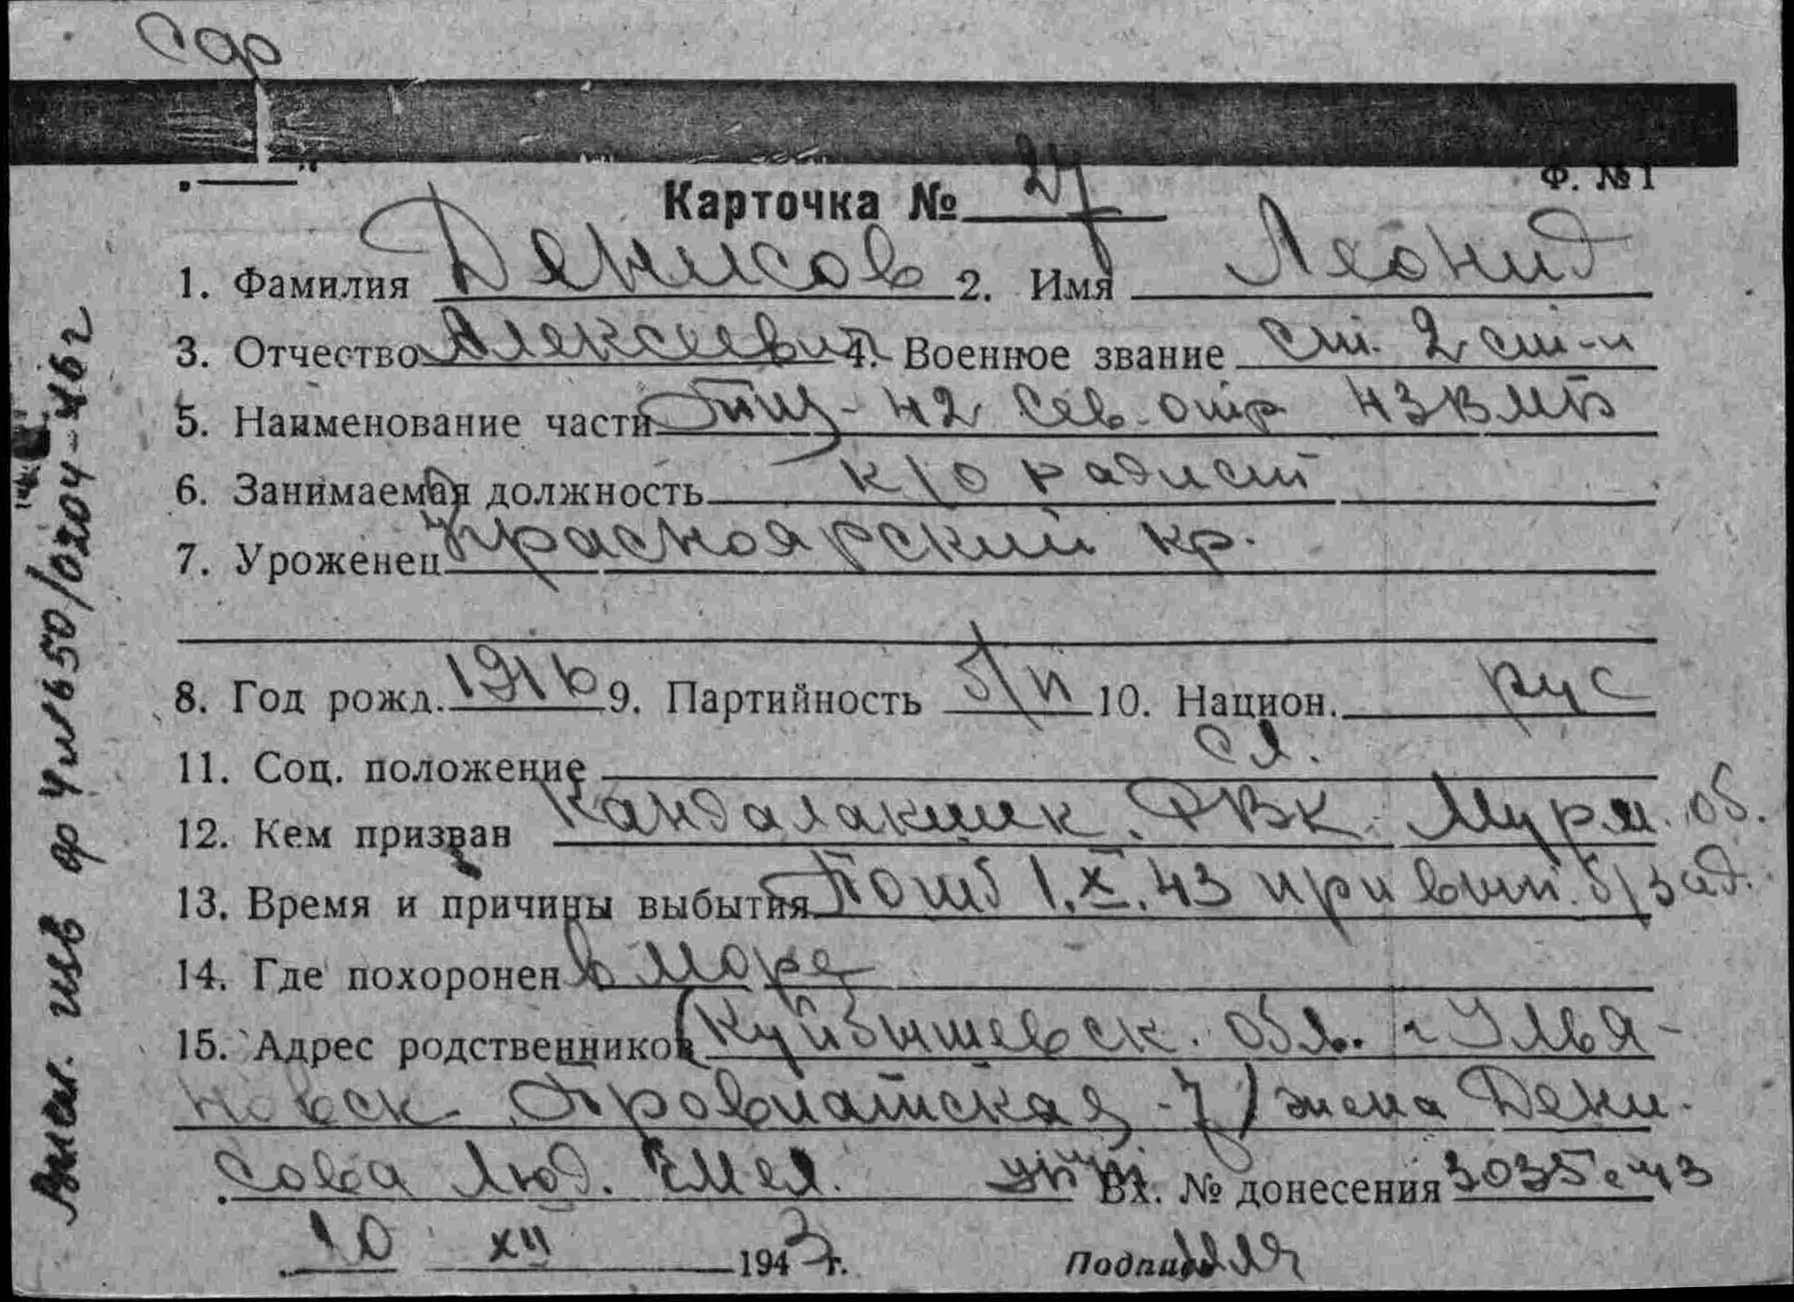 Ф. № 1
Карточка № 27
1. Фамилия Денисов 2. Имя Леонид
3. Отчество Алексеевич 4. Военное звание ст. 2 ст-и
5. Наименование части ТЩ-42 Сев. отр ЧЗВМБ
6. Занимаемая должность к/о радист
7. Уроженец Красноярский кр.
8. Год рожд. 1916 9. Партийность б/п 10. Национ. рус
11. Соц. положение сл.
12. Кем призван Кандалакшск. РВК. Мурм. об.
13. Время и причины выбытия Погиб 1.X.43 при вып. б/зад.
14. Где похоронен в море
15. Адрес родственников (Куйбышевск. обл. г Улья-
новск Провиатская -7) жена Дени-
сова Люд. Емел. Вх. № донесения 3035с 43
10 XII 1943 г. Подпись